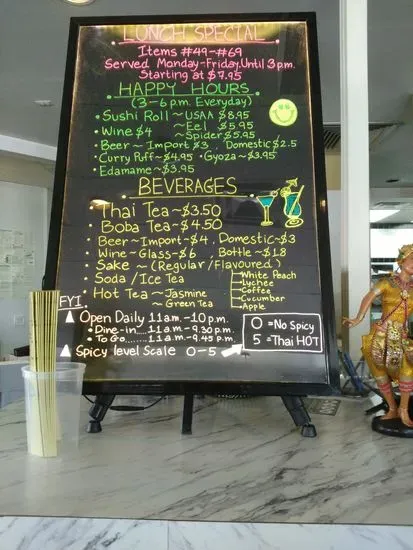 LUNCH SPECIAL
Items #49-#69
Served Monday-Friday, Until 3pm.
Starting at $7.95
HAPPY HOURS
(3-6 p.m. Everyday)
• Sushi Roll ~ USAA $8.95
~ Eel $5.95
• Wine $4 ~ Spider $5.95
• Beer ~ Import $3, Domestic $2.5
• Curry Puff ~ $4.95 • Gyoza ~ $3.95
• Edamame ~ $3.95
BEVERAGES
• Thai Tea ~ $3.50
• Boba Tea ~ $4.50
• Beer ~ Import - $4, Domestic ~ $3
• Wine ~ Glass - $6, Bottle ~ $18
• Sake ~ (Regular / Flavoured)
• Soda / Ice Tea
• Hot Tea ~ Jasmine
~ Green Tea
White Peach
Lychee
Coffee
Cucumber
Apple
FYI
Open Daily 11 a.m. - 10 p.m.
• Dine-in... 11 a.m. - 9.30 p.m.
• To Go....... 11 a.m. - 9.45 p.m.
Spicy level Scale 0-5
0 = No Spicy
5 = Thai HOT